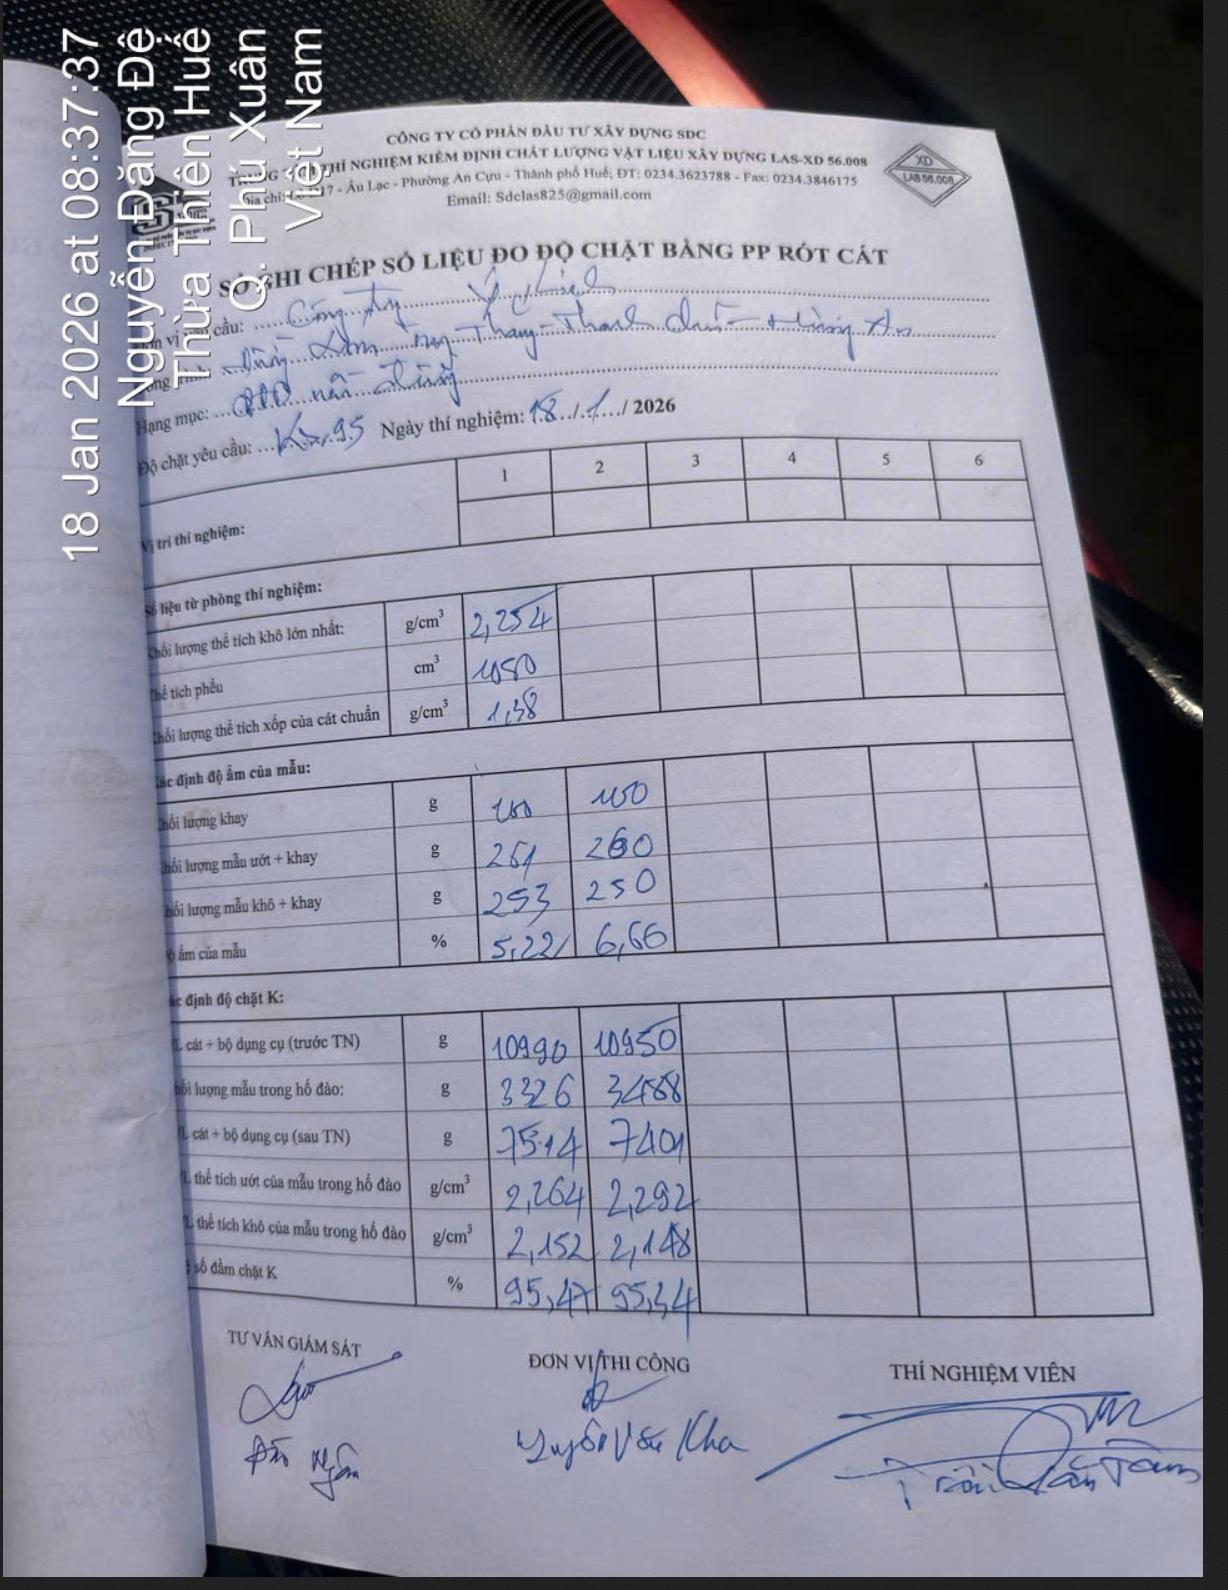 18 Jan 2026 at 08:37:37
Nguyễn Đăng Đệ
Thừa Thiên Huế
Q. Phú Xuân
Việt Nam
CÔNG TY CỔ PHẦN ĐẦU TƯ XÂY DỰNG SDC
THÍ NGHIỆM KIỂM ĐỊNH CHẤT LƯỢNG VẬT LIỆU XÂY DỰNG LAS-XD 56.008
17 - Âu Lạc - Phường An Cựu - Thành phố Huế; ĐT: 0234.3623788 - Fax: 0234.3846175
Email: Sdclas825@gmail.com
XD
LAS 56.008
SỔ GHI CHÉP SỐ LIỆU ĐO ĐỘ CHẶT BẰNG PP RÓT CÁT
cầu: Công ty
Thanh
Hạng mục: nền đường
Độ chặt yêu cầu: K 95 Ngày thí nghiệm: 18/1/2026
Vị trí thí nghiệm: 1 2 3 4 5 6
Số liệu từ phòng thí nghiệm:
hối lượng thể tích khô lớn nhất: g/cm³ 2,254
hể tích phễu cm³ 1050
hối lượng thể tích xốp của cát chuẩn g/cm³ 1,38
ác định độ ẩm của mẫu:
hối lượng khay g 100 100
hối lượng mẫu ướt + khay g 261 260
hối lượng mẫu khô + khay g 253 250
ộ ẩm của mẫu % 5,22 6,66
ác định độ chặt K:
L cát + bộ dụng cụ (trước TN) g 10990 10950
hối lượng mẫu trong hố đào: g 3326 3488
L cát + bộ dụng cụ (sau TN) g 7514 7401
L thể tích ướt của mẫu trong hố đào g/cm³ 2,264 2,292
L thể tích khô của mẫu trong hố đào g/cm³ 2,152 2,148
số đầm chặt K % 95,47
TƯ VẤN GIÁM SÁT ĐƠN VỊ THI CÔNG THÍ NGHIỆM VIÊN